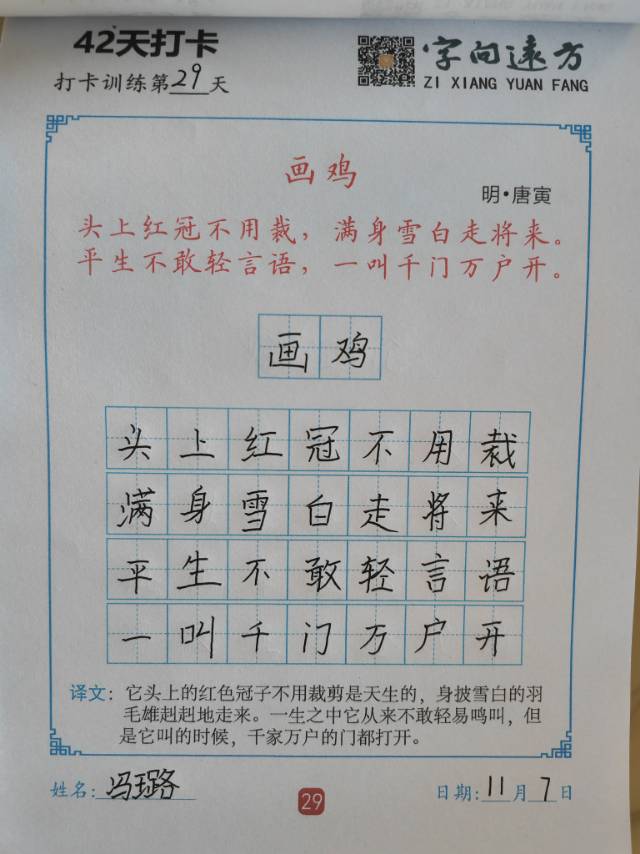 42天打卡
打卡训练第29天
字向远方
ZI XIANG YUAN FANG
画鸡
明·唐寅
头上红冠不用裁，满身雪白走将来。
平生不敢轻言语，一叫千门万户开。
画鸡
头上红冠不用裁
满身雪白走将来
平生不敢轻言语
一叫千门万户开
译文：它头上的红色冠子不用裁剪是天生的，身披雪白的羽
毛雄赳赳地走来。一生之中它从来不敢轻易鸣叫，但
是它叫的时候，千家万户的门都打开。
姓名：冯璐
29
日期：11月7日